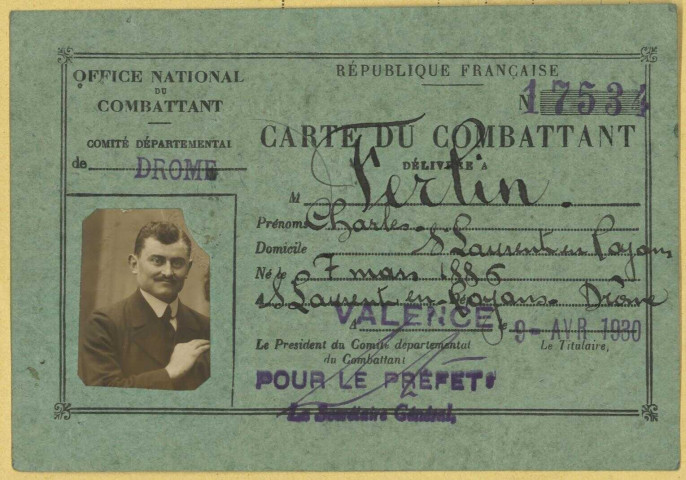 OFFICE NATIONAL
DU
COMBATTANT
COMITÉ DÉPARTEMENTAL
de DROME
RÉPUBLIQUE FRANÇAISE
N 17534
CARTE DU COMBATTANT
DÉLIVRÉE A
M Ferlin.
Prénoms Charles
Domicile St Laurent en Royans
Né le 7 mars 1886
à St Laurent en Royans Drôme
A VALENCE, le 9 - AVR 1930
Le President du Comité départemental
du Combattant
Le Titulaire,
POUR LE PRÉFET:
Le Secrétaire Général,